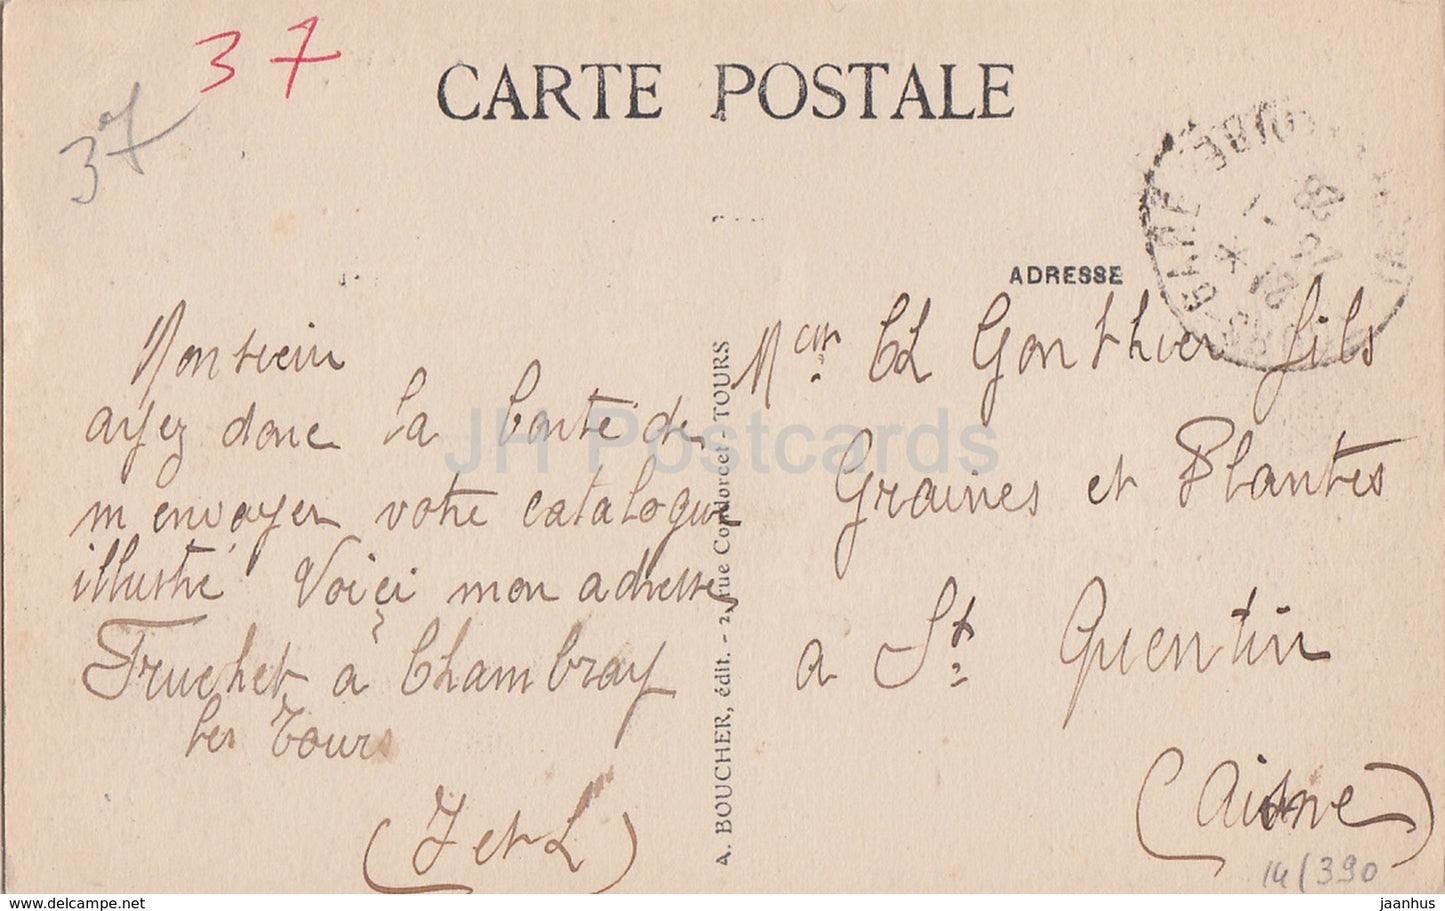 37
37
CARTE POSTALE
ADRESSE
Monsieur
ayez donc la bonté de
m'envoyer votre catalogue
illustré Voici mon adresse
Fruchet à Chambray
les Tours
(I et L)
A. BOUCHER, édit. - 2, rue Condorcet - TOURS
Meur Ch Gonthier fils
Graines et Plantes
a St Quentin
(Aisne)
14/390
JH Postcards
delcampe.net
jaanhus